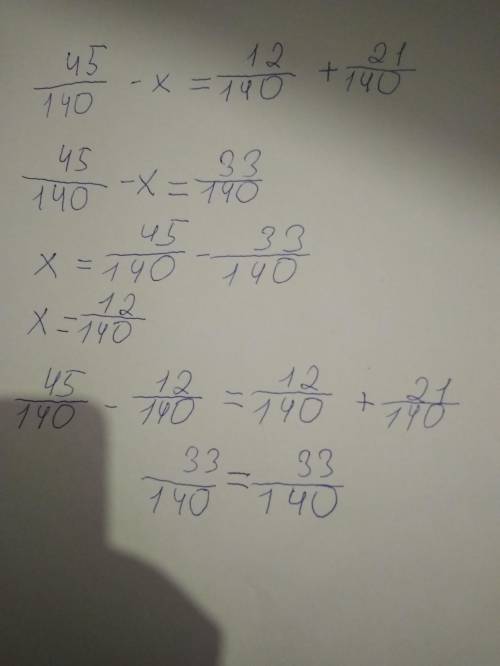 45/140 - x = 12/140 + 21/140
45/140 - x = 33/140
x = 45/140 - 33/140
x = 12/140
45/140 - 12/140 = 12/140 + 21/140
33/140 = 33/140